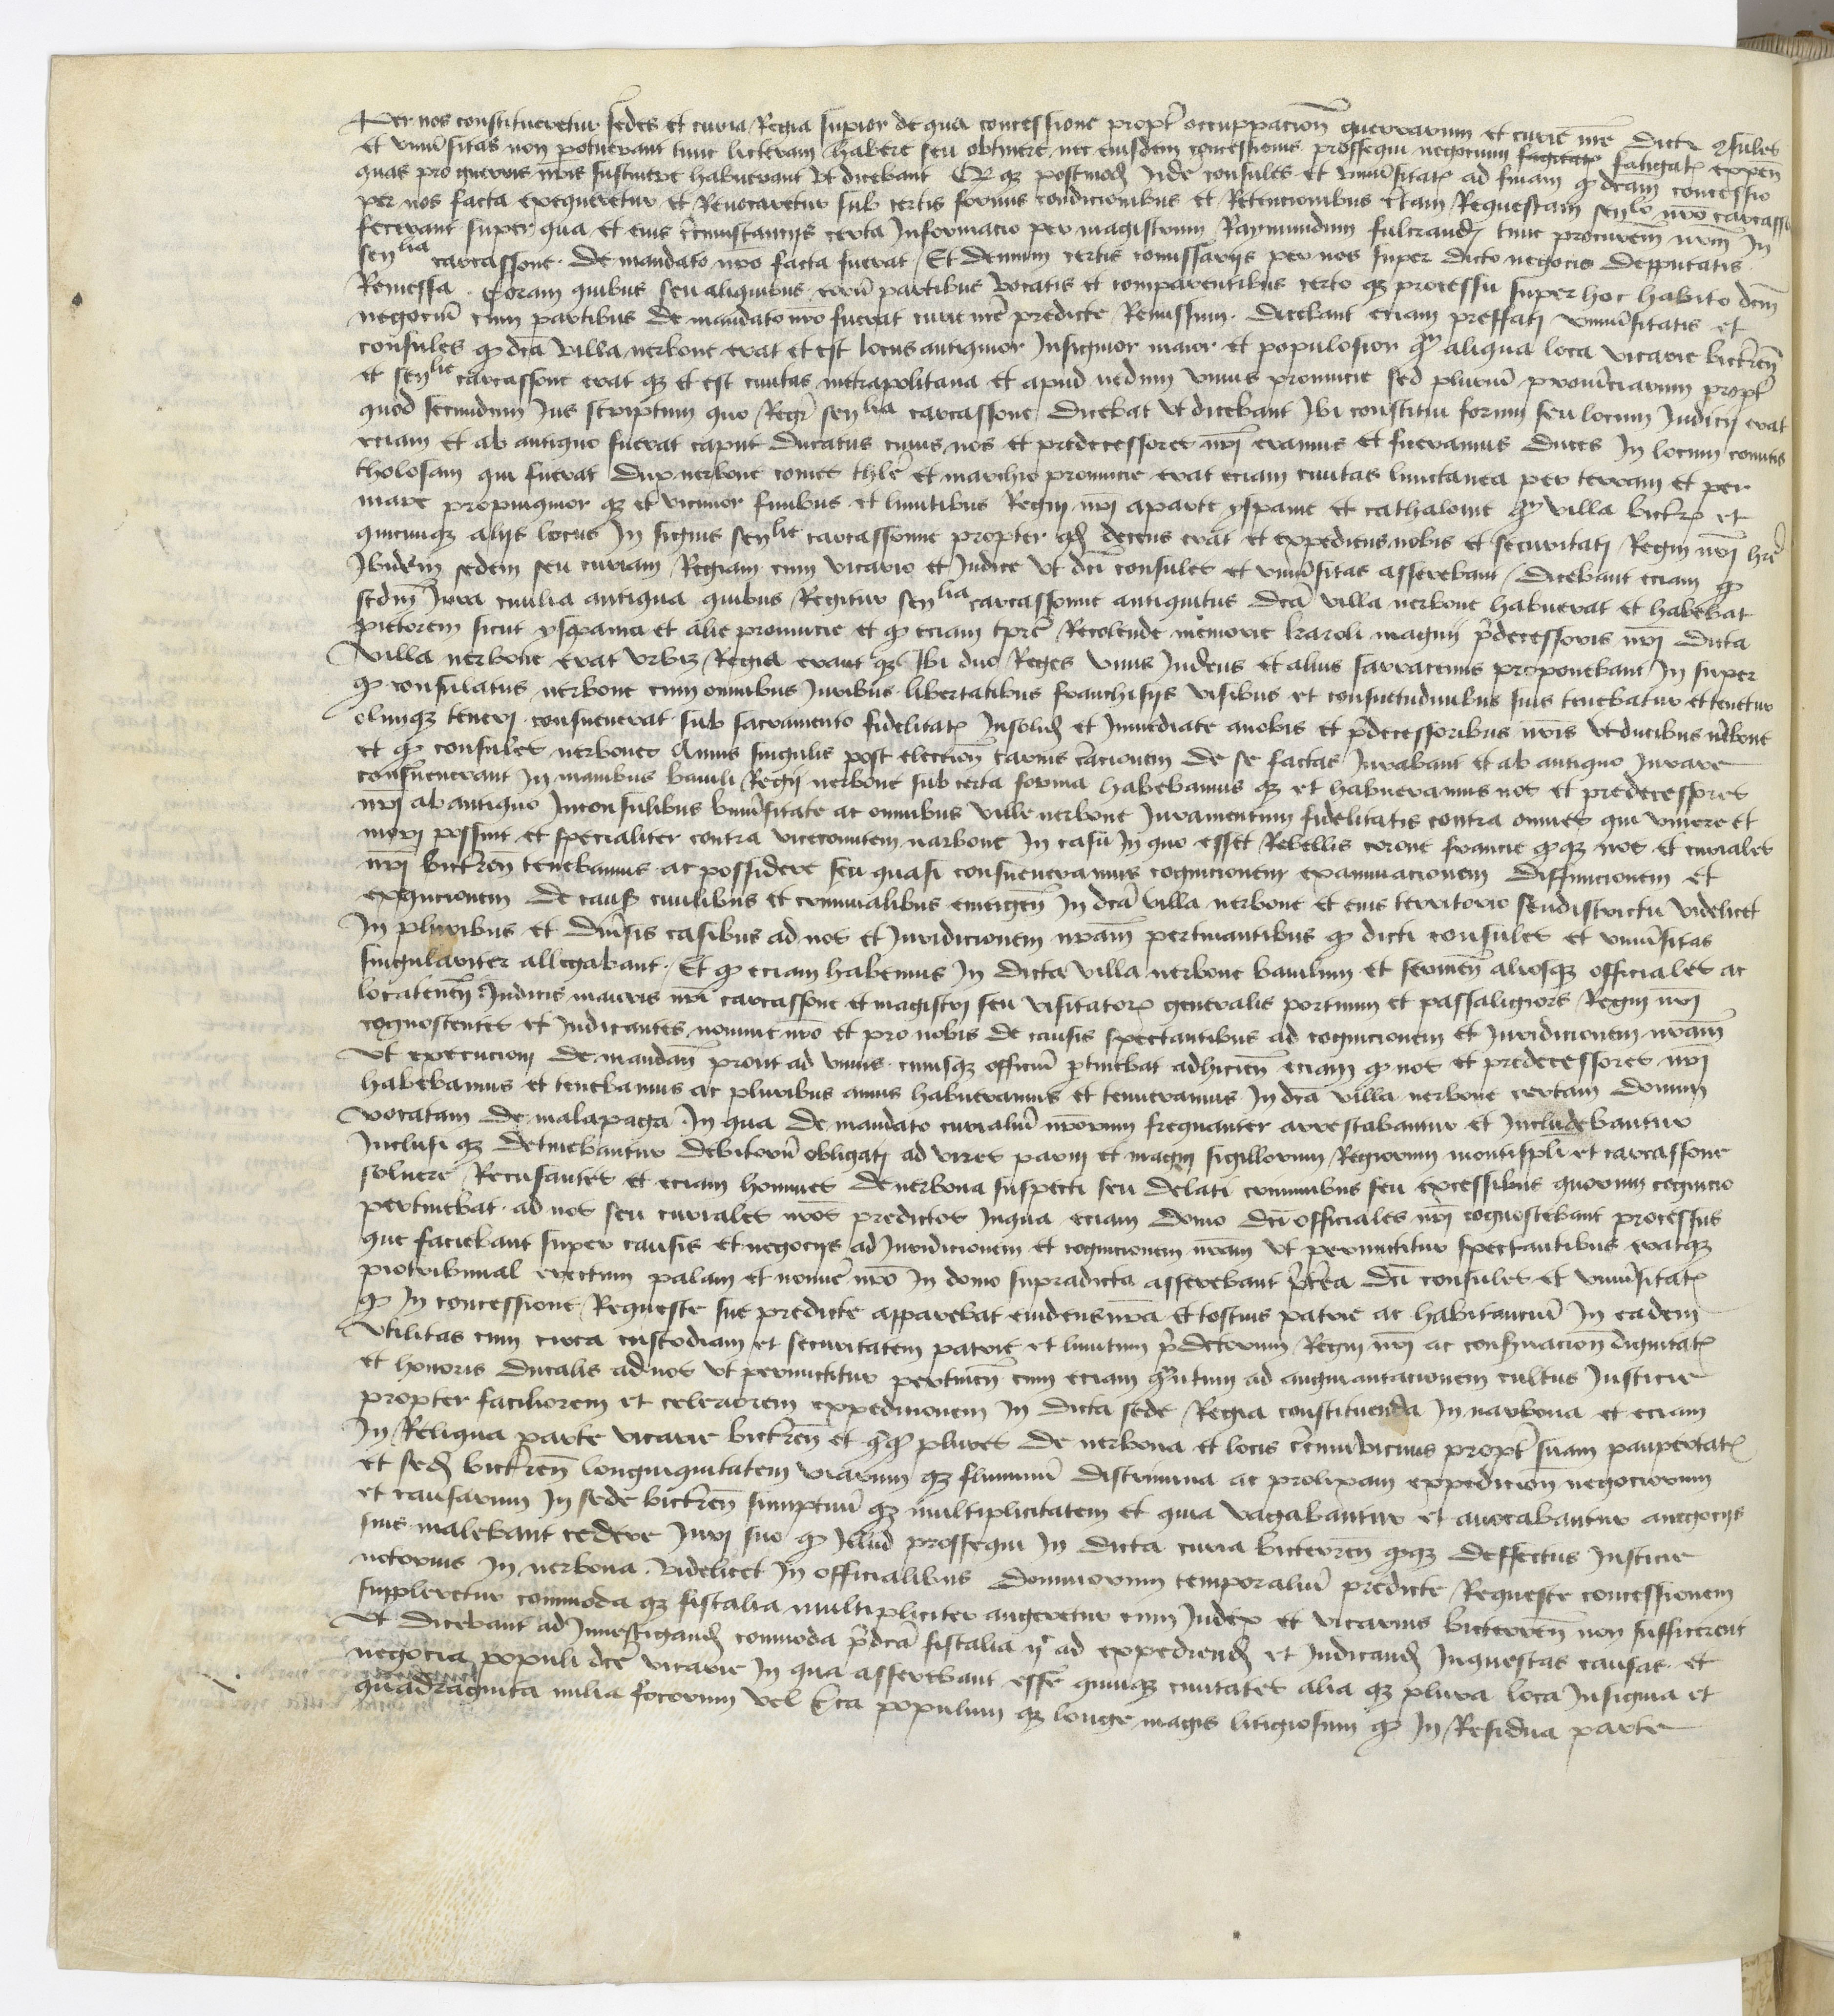 Per nos constitueretur sedes et curia Regia supior de qua concessione propt occuppacion guerrarum et curie nre dicti 9sules
et univsitas non potuerant tunc licteram habere seu obtinere nec eiusdem concessionis prossequi negocium fatigat expen
quas pro guerris nris sustinere habuerant ut dicebant Et qz postmod iide consules et univsitat ad finam q dcam concessio
per nos facta exequeretur et Revocaretur sub certis formis condicionibus et Retencionibus Requestam senlo nro carcass
fecerant super qua et eius circumstanciis certa Informacio per magistrum Raymundum fulcrand tunc procurem nrm In
senlia carcassone de mandato nro facta fuerat Et demum certis comissariis per nos super dicto negocio depputatis
Remessa Coram quibus seu aliquibus eoru partibus vocatis et comparentibus certo qz processu super hoc habito dcm
negociu cum partibus de mandato nro fuerat curie nre predicte Remissum dicebant eciam preffati univsitatis et
consules q dca villa nerbone erat et est locus antiquior Insignior maior et populosior q aliqua loca vicarie bictren
et senlie carcassone erat qz et est civitas metrapolitana et apud nedum unius provincie sed pluriu provinciarum propt
quod secundum Jus scriptum quo Regr senlia carcassone dicebat ut dicebant Ibi constitui forum seu locum Judicii erat
eciam et ab antiquo fuerat caput ducatus cuius nos et predecessores nri eramus et fueramus duces In locum comitis
tholosam qui fuerat dux nerbone comes thle et marchio provincie erat eciam civitas limitanea per terram et per
mare propinquior qz et vicinior finibus et limitibus Regni nri aparte yspanie et cathalonie q villa bictr et
quicumqz aliis locus In signis senlie carcassonne propter qd decens erat et expediens nobis et securitati Regni nri hre
Ibidem sedem seu curiam Regiam cum vicario et Judice ut dci consules et univsitas asserebant dicebant eciam q
scdm Jura civilia antiqua quibus Regitur senlia carcassonne antiquitus dca villa nerbone habuerat et habebat
pretorem sicut yspania et alie provincie et q eciam tpre Recolende memorie karoli magni pdecessoris nri dicta
villa nerbone erat urbis Regia erant qz Ibi duo Reges unus Judeus et alius sarracenus proponebant In super
q consulatus nerbone cum omnibus Juribus libertatibus franchisiis usibus et consuetudinibus suis tenebatur et tenetur
olimqz teneri consueverat sub sacramento fidelitat Insolid et Inmediate anobis et pdecessoribus nris ut ducibus nrbone
et q consules nerbones Annis singulis post election earius creacionem de se factas Jurabant et ab antiquo Jurare
consueverant In manibus baiuli Regii nerbone sub certa forma habebamus qz et habueramus nos et predecessores
nri ab antiquo Inconsulibus univsitate ac omnibus ville nerbone Juramentum fidelitatis contra omnes qui vivere et
mori possunt et specialiter contra vicecomitem narbone In casu In quo esset Rebellis corone francie qqz nos et curiales
nri bictren tenebamus ac possidere seu quasi consueveramus cognicionem examinacionem diffinicionem et
exequcionem de caus civilibus et criminalibus emergen In dca villa nerbone et eius territorio seu districtu videlicet
In pluribus et divsis casibus ad nos et Juridicionem nram pertinantibus q dicti consules et univsitas
singulariter allegabant Et q eciam habemus In dicta villa nerbone baiulum et servien aliosqz officiales ac
locatenen Judicis maioris nri carcassone et magistri seu visitator generalis portuum et passaligiors Regni nri
cognoscentes et Judicantes nomine nro et pro nobis de causis spectantibus ad cognicionem et Juridicionem nram
ut execucioni de mandan prout ad unius cuiusqz officiu ptinebat adhicien eciam q nos et predecessores nri
habebamus et tenebamus ac pluribus annis habueramus et tenueramus In dca villa nerbone certam domum
vocatam de malapaga In qua de mandato curialiu nrorum frequanter arrestabantur et Includebantur
Inclusi qz detinebantur debitoru obligati ad vires parvi et magni sigillorum Regiorum montispli et carcassone
solvere Recusantes et eciam homines de nerbona suspecti seu delati criminibus seu excessibus quorum cognicio
pertinebat ad nos seu curiales nros predictos Inqua eciam domo dci officiales nri cognoscebant processus
que faciebant super causis et negociis ad Juridicionem et cognicionem nram ut permittitur spectantibus eratqz
protribunal erectum palam et nomie nro In domo supradicta asserebant pterea dci consules et univsitat
q In concessione Requeste sue predicte apparebat evidens nra et tocius patrie ac habitanciu In eadem
utilitas cum circa custodiam et securitatem patrie et limitum pdctorum Regni nri ac confirvacion dignitat
et honoris ducalis ad nos ut permittitur pertinen cum eciam qntum ad augmantacionem cultus Justicie
propter faciliorem et celeriorem expedicionem In dicta sede Regia constituenda In narbona et eciam
In Reliqua parte vicarie bictren et qq plures de nerbona et locis circumvicinis propt suam paupertat
et sed bictren longinquitatem viarum qz fluminu discrimina ac prolixam expedicion negociorum
et causarum In sede bictren sumptuu qz multiplicitatem et quia vagabantur et avocabantur anegociis
suis malebant cedere Juri suo q Illud prossequi In dicta curia bicterren qqz deffectus Justicie
notorius In nerbona videlicet In officialibus dominorum temporaliu predicte Requeste concessionem
suppleretur commoda qz fiscalia multipliciter augeretur cum Judex et vicarius bicterren non sufficerent
ut dicebant ad Investigand commoda pdca fiscalia ad expediend et Judicand Inquestas causas et
negocia populi dce vicarie In qua asserebant esse quinqz civitates alia qz plura loca Insignia et
quadraginta milia focorum vel circa populum qz longe magis litigiosum q In Residua parte